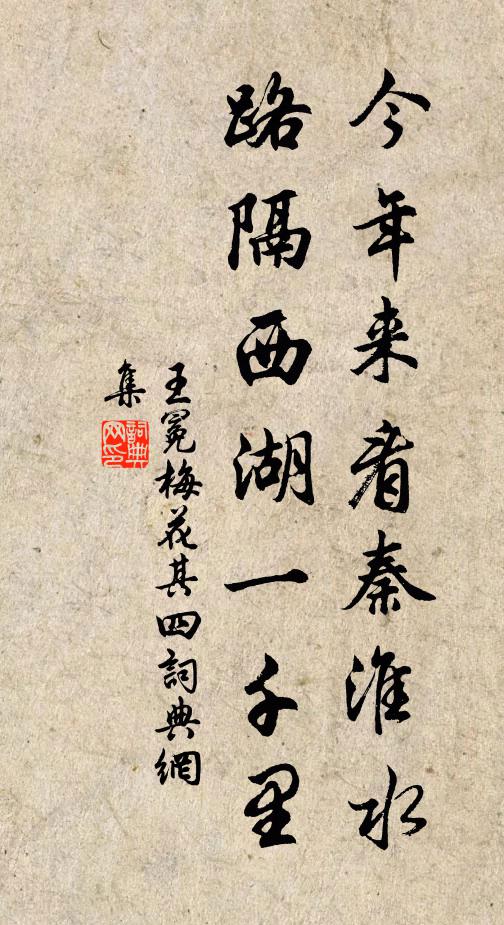 今年来看秦淮水
路隔西湖一千里
王冕梅花其四詞典網
集
詞典
网印